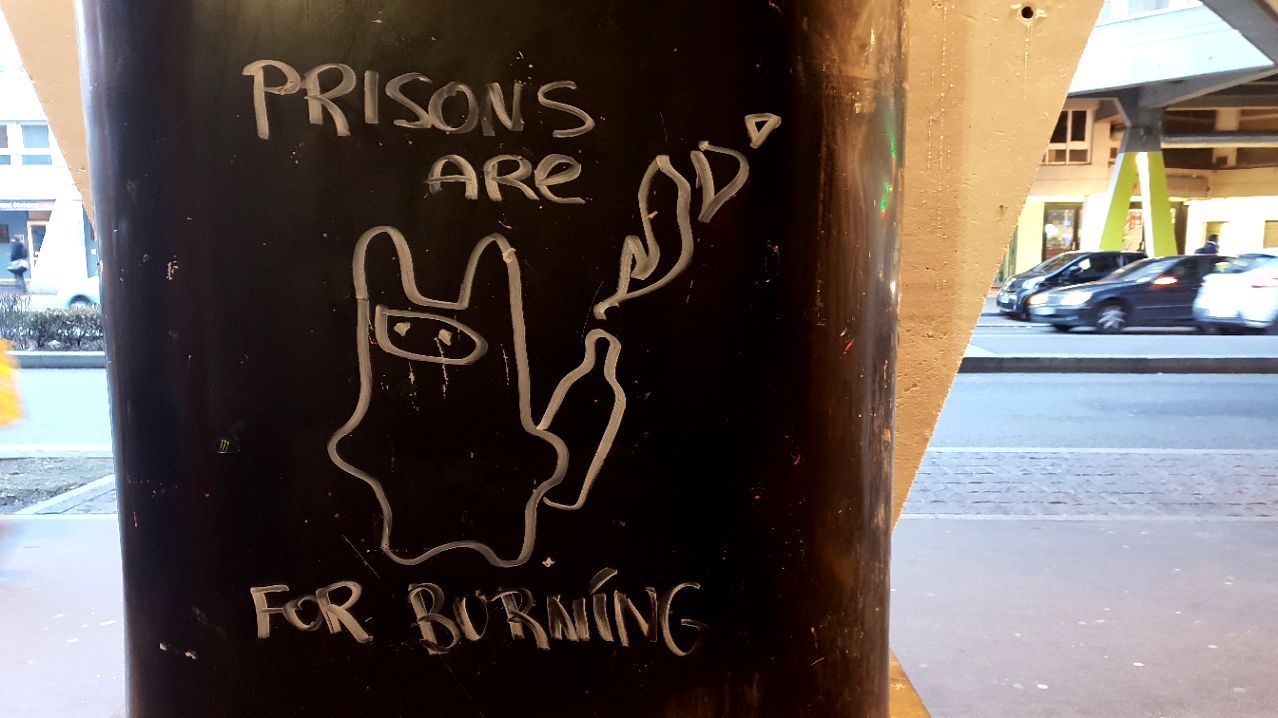 PRISONS
ARE
FOR BURNING